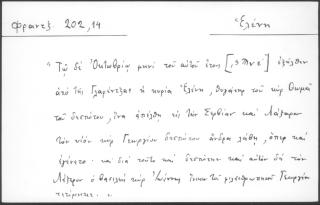 Φραντζ. 202,14
Ἑλένη
"Τῷ δὲ Ὀκτωβρίῳ μηνὶ τοῦ αὐτοῦ ἔτους [,ϛϡνε] ἐξῆλθεν
ἀπὸ τῆς Γλαρέντζας ἡ κυρία Ἑλένη, θυγάτηρ τοῦ κὺρ Θωμᾶ
τοῦ δεσπότου, ἵνα ἀπέλθῃ εἰς τὴν Σερβίαν καὶ Λάζαρον
τὸν υἱὸν κὺρ Γεωργίου δεσπότου ἄνδρα λάβῃ, ὅπερ καὶ
ἐγένετο. καὶ διὰ τοῦτο καὶ δεσπότην καὶ αὐτὸν δὴ τὸν
Λάζαρον ὁ βασιλεὺς κὺρ Ἰωάννης
Γεωργίου
τετίμηκε.